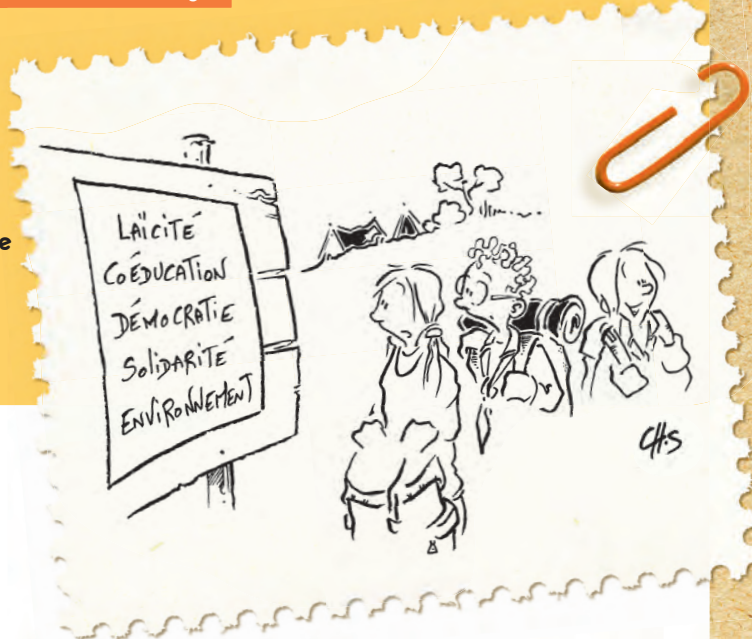 e
LAÏCITÉ
COÉDUCATION
DÉMOCRATIE
SOLIDARITÉ
ENVIRONNEMENT
CH.S